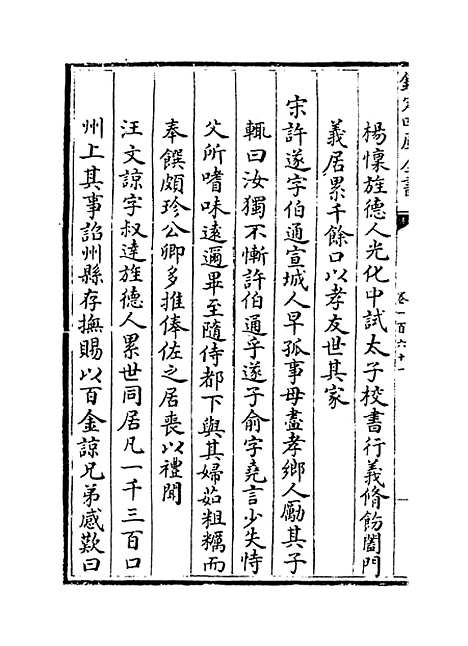 欽定四庫全書
卷一百六十一
楊懍旌德人光化中試太子校書行義脩飭闔門
義居累千餘口以孝友世其家
宋許遂字伯通宣城人早孤事母盡孝鄉人勵其子
輒曰汝獨不慚許伯通乎遂子俞字堯言少失恃
父所嗜味逺邇畢至隨侍都下與其婦茹粗糲而
奉饌頗珍公卿多推俸佐之居喪以禮聞
汪文諒字叔達旌德人累世同居凡一千三百口
州上其事詔州縣存撫賜以百金諒兄弟感歎曰